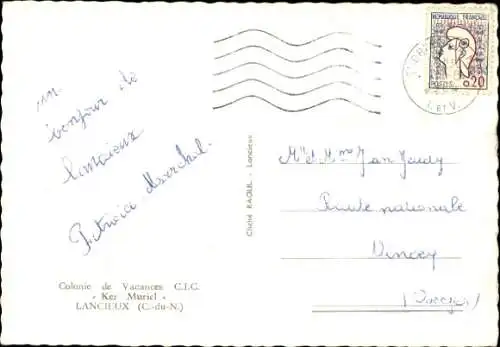 RÉPUBLIQUE FRANÇAISE
POSTES
0,20
I. ET V.
un
bonjour de
Lancieux
Patricia Marchal.
Cliché RAOUL - Lancieux
Mr et Mme Jean
Route nationale
Vincey
(Vosges)
Colonie de Vacances C.I.C.
- Ker Muriel -
LANCIEUX (C.-du-N.)